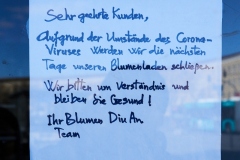 Sehr geehrte Kunden,
Aufgrund der Umstände des Corona-
Viruses werden wir die nächsten
Tage unseren Blumenladen schließen.
Wir bitten um Verständnis und
bleiben Sie Gesund!
Ihr Blumen Diu An
Team